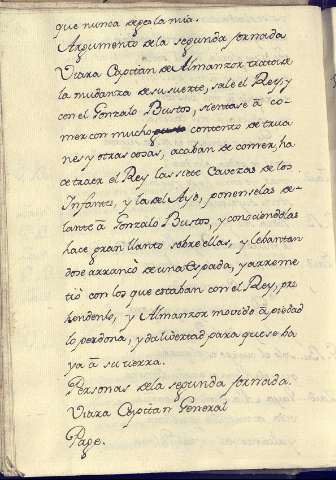 que nunca dege la mia.
Argumento de la segunda jornada
Viara Capitan de Almanzor tratro de
la mudanza de su suerte, sale el Rey, y
con el Gonzalo Bustos, sientase ā co-
mer con mucho contento de trua
nes y otras cosas, acaban de comer, ha
ce traer el Rey las siete Cavezas de los
Infantes, y la del Ayo, ponenselas de-
lante ā Gonzalo Bustos, y conociendolas
hace gran llanto sobre ellas, y lebantan
dose arrancò de una espada, y arreme
tiò con los que estaban con el Rey, pre
hendenlo, y Almanzor movido ā piedad
lo perdona, y da libertad para que se ha
ya ā su tierra.
Personas de la segunda jornada.
Viara Capitan General
Page.